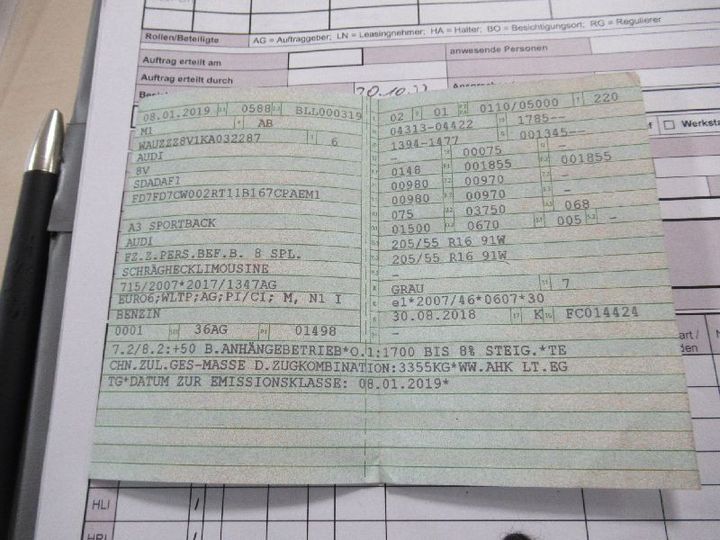 Rollen/Beteiligte AG = Auftraggeber; LN = Leasingnehmer; HA = Halter; BO = Besichtigungsort; RG = Regulierer
Auftrag erteilt am anwesende Personen
Auftrag erteilt durch
20.10.22
Werksta
08.01.2019 0588 BLL000319
M1 AB
WAUZZZ8V1KA032287 6
AUDI
8V
SDADAF1
FD7FD7CW002RT11BI67CPAEM1
A3 SPORTBACK
AUDI
FZ.Z.PERS.BEF.B. 8 SPL.
SCHRÄGHECKLIMOUSINE
715/2007*2017/1347AG
EURO6;WLTP;AG;PI/CI; M, N1 I
BENZIN
0001 36AG 01498
02 01 0110/05000 220
04313-04422 1785--
1394-1477 001345--
- 00075 -
0148 001855 001855
00980 00970 -
00980 00970 -
075 03750 068
01500 0670 005 -
205/55 R16 91W
205/55 R16 91W
-
GRAU 7
e1*2007/46*0607*30
30.08.2018 K FC014424
-
7.2/8.2:+50 B.ANHÄNGEBETRIEB*O.1:1700 BIS 8% STEIG.*TE
CHN.ZUL.GES-MASSE D.ZUGKOMBINATION:3355KG*WW.AHK LT.EG
TG*DATUM ZUR EMISSIONSKLASSE: 08.01.2019*
HLI